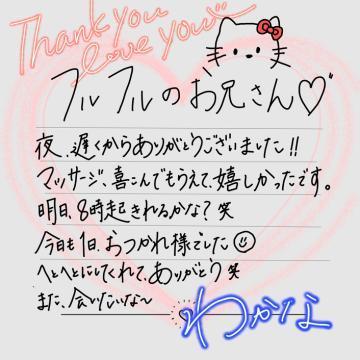 Thank you
love you
フルフルのお兄さん♡
夜、遅くからありがとうございました!!
マッサージ、喜こんでもらえて、嬉しかったです。
明日、8時起きれるかな?笑
今日も1日、おつかれ様でした☺
へとへとにしてくれて、ありがとう笑
また、会いたいな〜
わかな